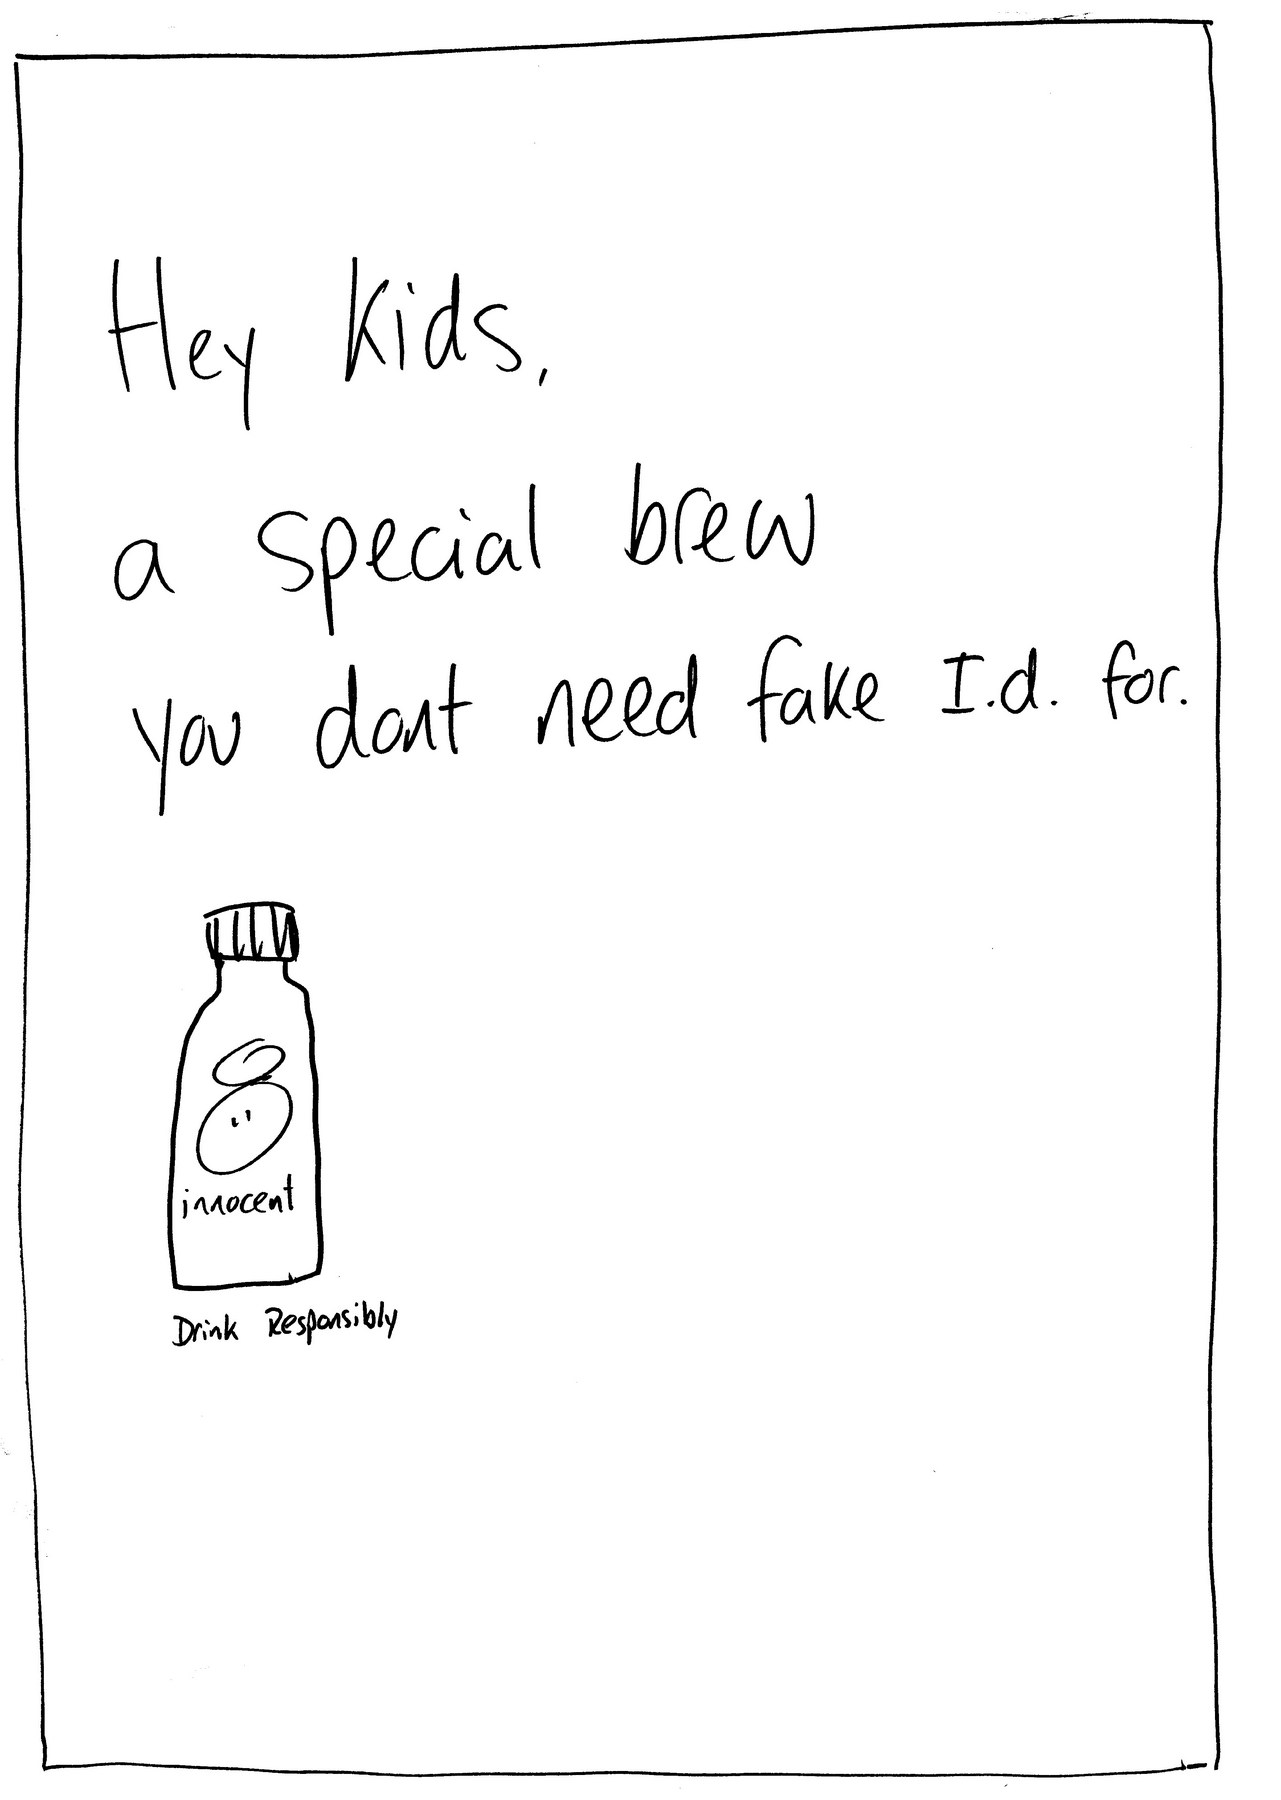 Hey Kids,
a special brew
you dont need fake I.d. for.
innocent
Drink Responsibly